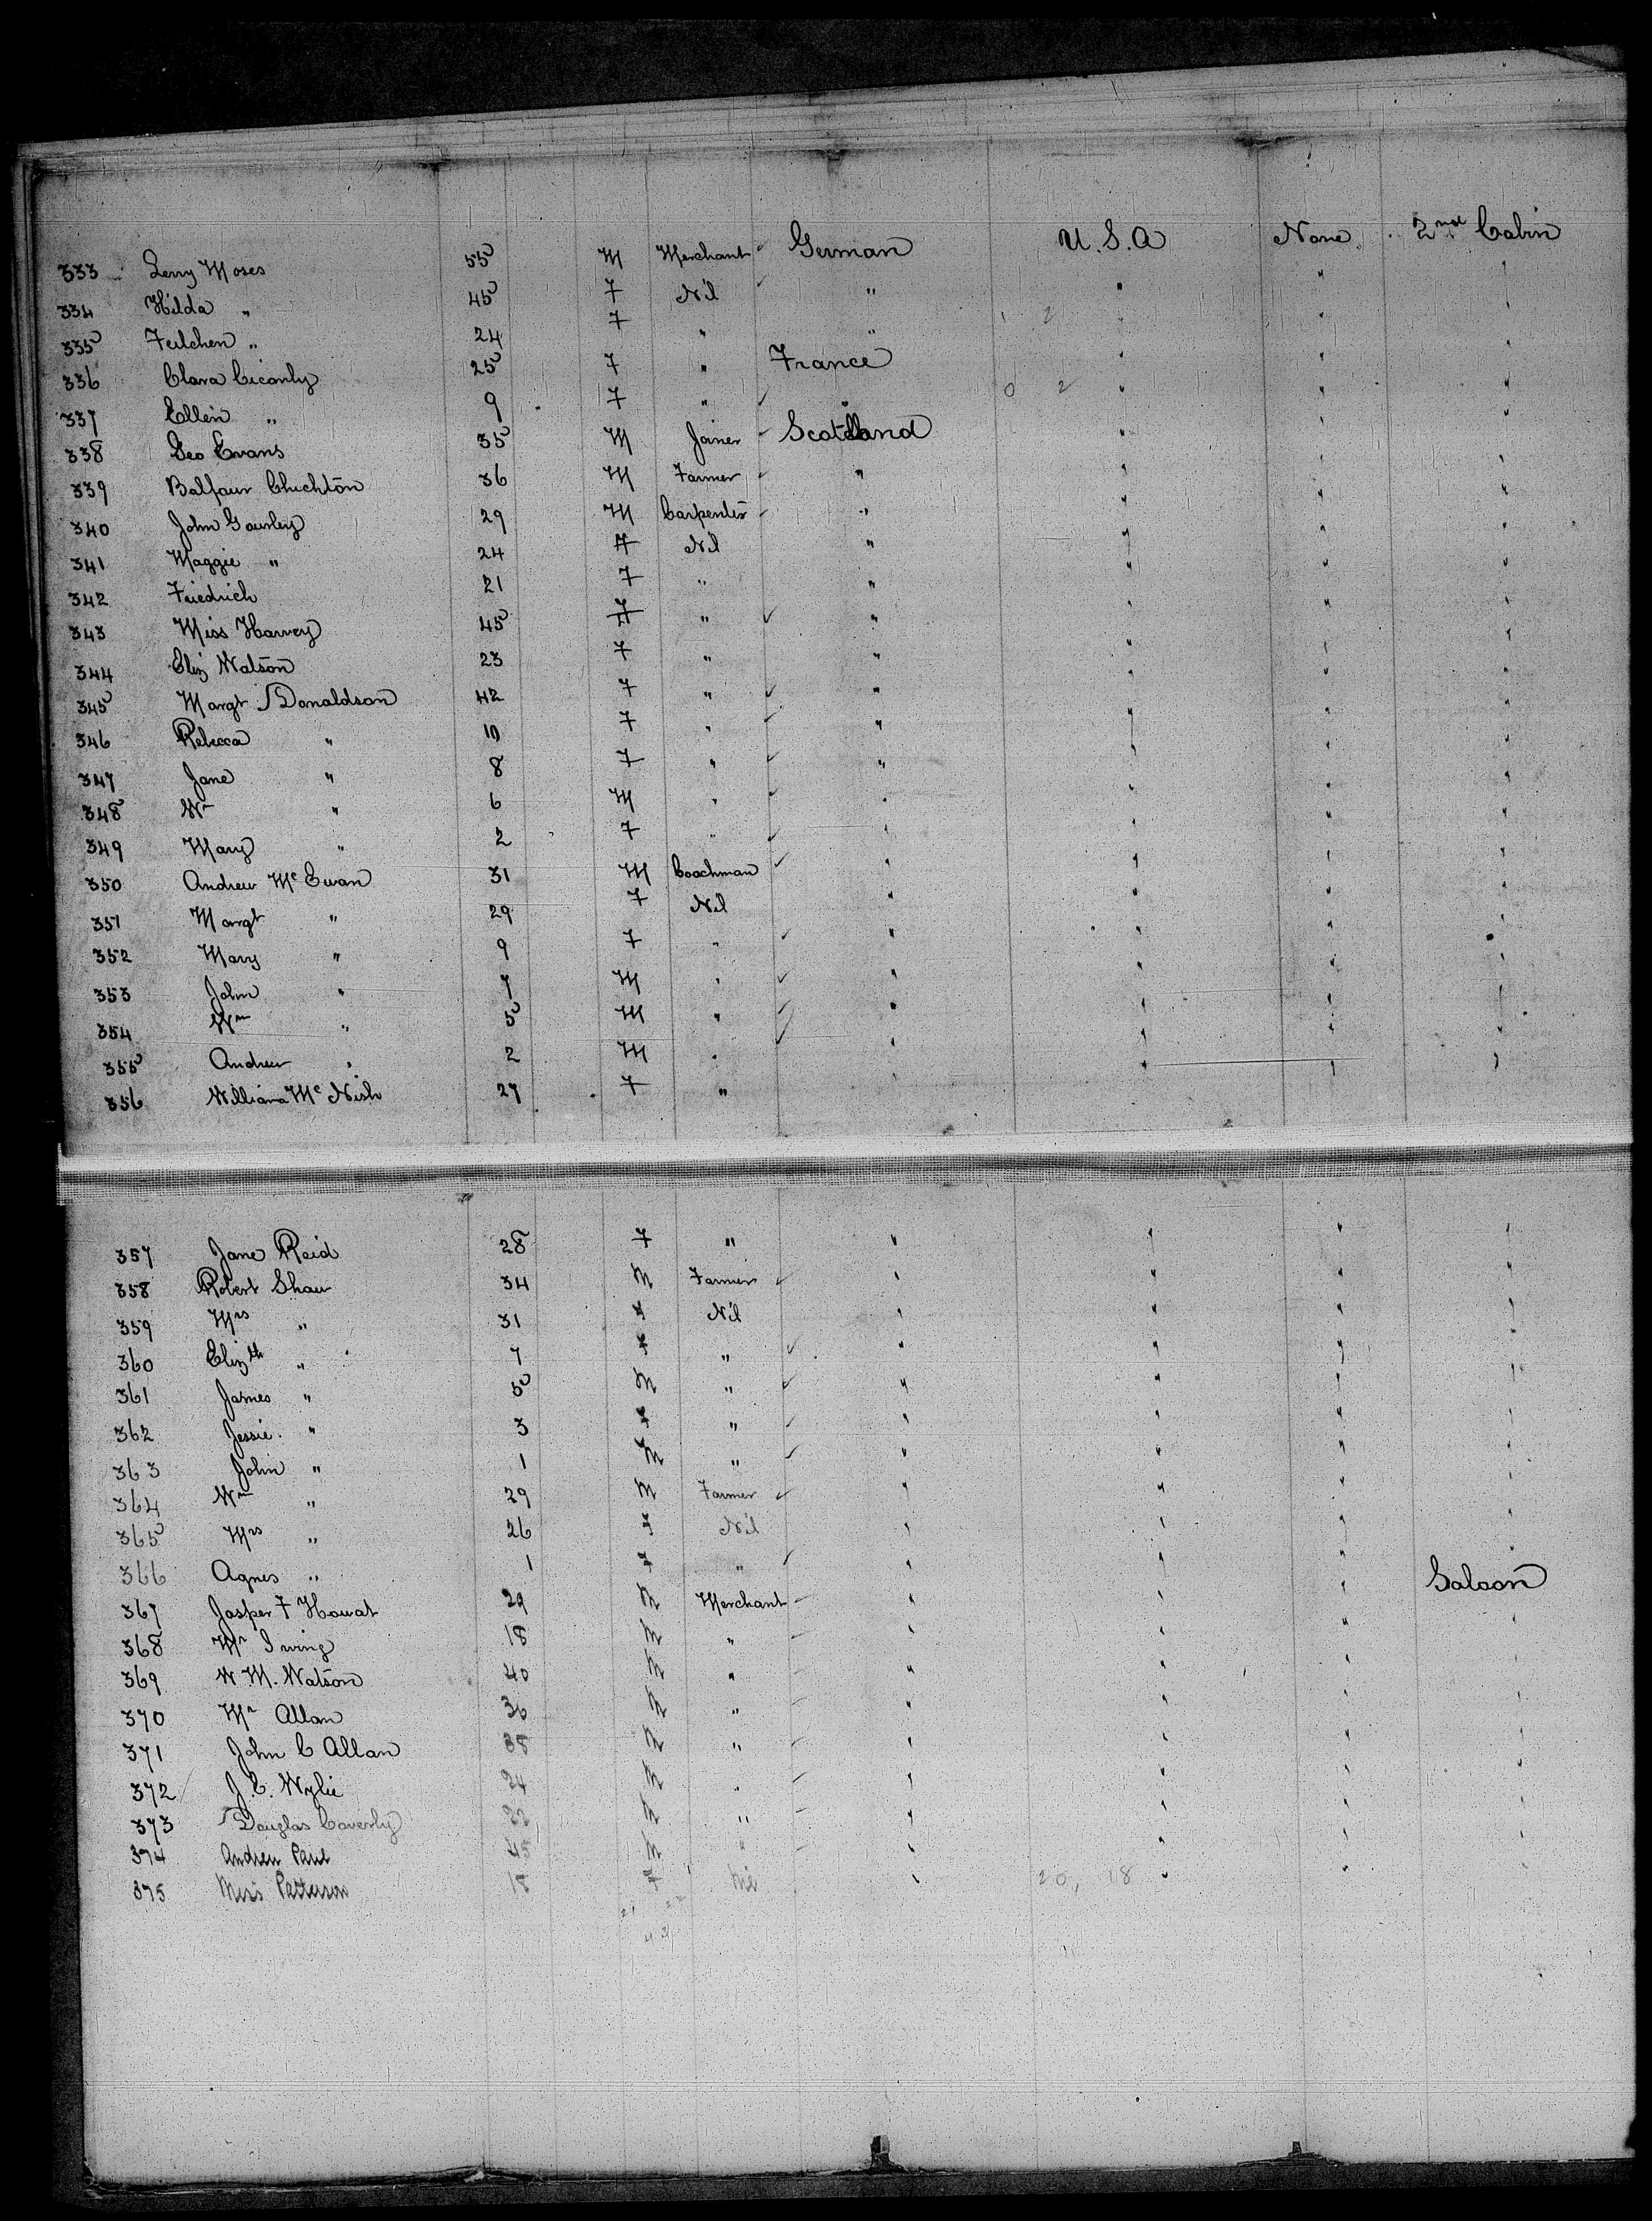 333 Lerry Moses 55 M Merchant German U.S.A None 2nd Cabin
334 Hilda " 45 F Nil " " " "
335 Feilchen " 24 F " " " " "
336 Clara 25 F " France " " "
337 Ellen " 9 F " " " " "
338 Geo Evans 35 M Joiner Scotland " " "
339 Balfour 36 M Farmer " " " "
340 John Gourley 29 M Carpenter " " " "
341 Maggie " 24 F Nil " " " "
342 Friedrich 21 F " " " " "
343 Miss Harvey 45 F " " " " "
344 Eliz Watson 23 F " " " " "
345 Margt Donaldson 42 F " " " " "
346 Rebecca " 10 F " " " " "
347 Jane " 8 F " " " " "
348 Wm " 6 M " " " " "
349 Mary " 2 F " " " " "
350 Andrew McEwan 31 M Coachman " " " "
351 Margt " 29 F Nil " " " "
352 Mary " 9 F " " " " "
353 John " 7 M " " " " "
354 Wm " 5 M " " " " "
355 Andrew " 2 M " " " " "
356 Williama McNish 27 F " " " " "
357 Jane Reid 28 F " " " " "
358 Robert Shaw 34 M Farmer " " " "
359 Mrs " 31 F Nil " " " "
360 Elizth " 7 F " " " " "
361 James " 5 M " " " " "
362 Jessie " 3 F " " " " "
363 John " 1 M " " " " "
364 Wm " 29 M Farmer " " " "
365 Mrs " 26 F Nil " " " "
366 Agnes " 1 F " " " " "
367 Jasper F Howat 29 M Merchant " " " Saloon
368 Mr Irving 18 M " " " " "
369 W.M. Watson 40 M " " " " "
370 Mr Allan 36 M " " " " "
371 John C Allan 38 M " " " " "
372 J.C. Wylie 24 M " " " " "
373 Douglas Coverly M " " " " "
374 Andrew Paul 45 M " " " " "
375 Miss Patterson 18 F Nil " 20, 18 " " "